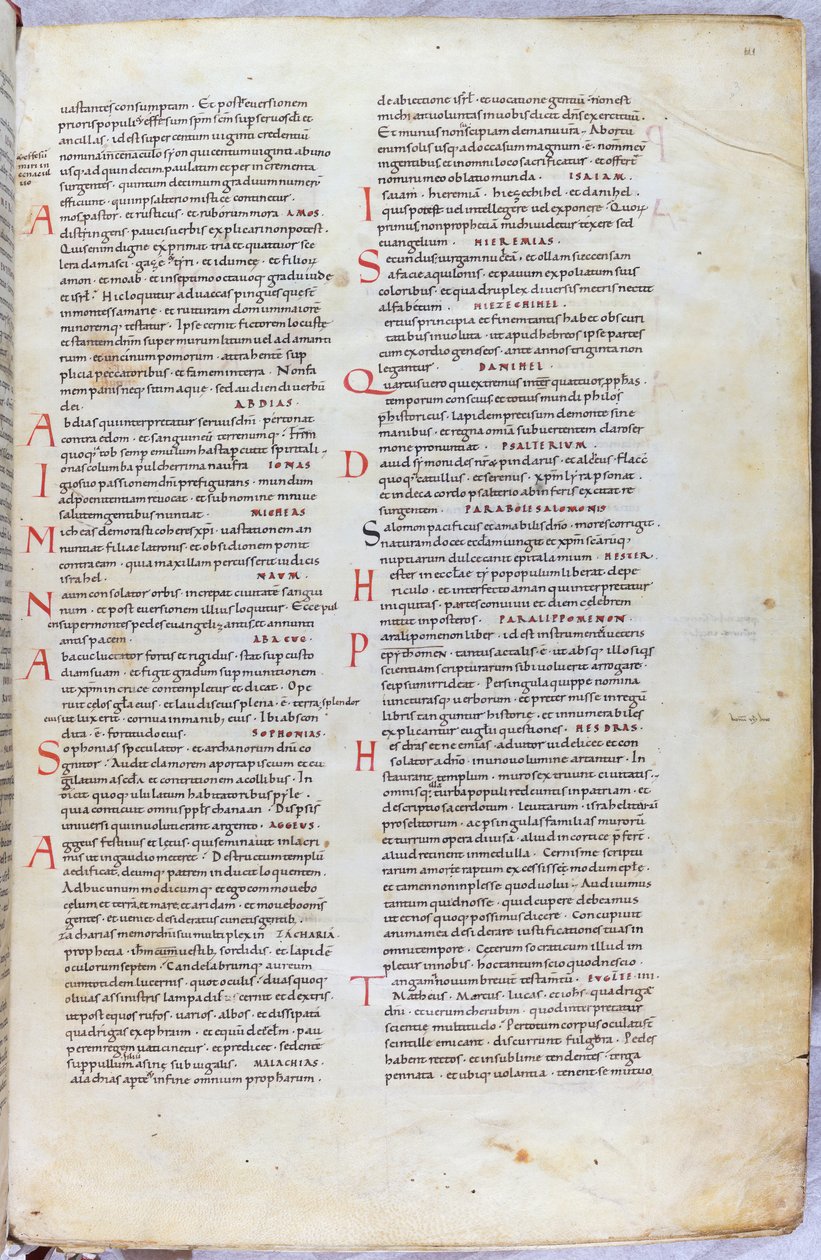 uastantes consumptam · Et post euersionem
prioris populi & effusum spm scm sup seruos di et
ancillas · id est super centum uiginti credentiū
nomina in cenaculo syon qui centum uiginti ab uno
usq; ad quindecim paulatim et per incrementa
surgentes · quintum decimum graduum numerū
efficiunt · qui in psalterio mistice continetur .
Amos pastor · et rusticus · et ruborum mora AMOS ·
distringens · paucis uerbis explicari non potest ·
Quis enim digne exprimat tria et quattuor sce
lera damasci · gazę & tyri · et idumeę · et filiorū
amon · et moab · et in septimo octauoq; gradu iudę
et isrl · Hic loquitur ad uaccas pingues quę st
in monte samarię · et ruituram domum maiorē
minoremq; testatur · Ipse cernit fictorem locustę
et stantem dnm super murum litum uel adamanti
num · et uncinum pomorum · attrahentē sup
plicia peccatoribus · et famem in terra · Non fa
mem panis neq; sitim aquę · sed audiendi uerbū
dei . ABDIAS ·
Abdias qui interpretatur seruus dni · personat
contra edom · et sanguineū terrenumq; · frem
quoq; iacob semp emulum hasta pcutit spiritali ·
Ionas columba pulcherrima naufra IONAS
gio suo passionem dni prefigurans · mundum
ad penitentiam reuocat · et sub nomine niniue
salutem gentibus nuntiat . MICHEAS
Micheas de morasti coheres xpi · uastationem an
nuntiat filiae latronis · et obsidionem ponit
contra eam · quia maxillam percusserit iudicis
israhel . NAUM ·
Naum consolator orbis · increpat ciuitatē sangui
num · et post euersionem illius loquitur · Ecce pul
cri super montes pedes euangelizantis et annunti
antis pacem . ABACUC ·
Abacuc luctator fortis et rigidus · stat sup custo
diam suam · et figit gradum sup munitionem
ut xpm in cruce contempletur et dicat · Ope
ruit cęlos gla eius · et laudis eius plena · ē · terra · splendor
eius ut lux erit · cornua in manib; eius · Ibi abscon
dita · ē · fortitudo eius . SOPHONIAS ·
Sophonias speculator · et archanorum dni co
gnitor · Audit clamorem a porta piscium et eiu
gilatum a scda · et contritionem a collibus · In
dicit quoq; ululatum habitatoribus pylę ·
quia conticuit omnis ppls chanaan · Dispersi st
uniuersi qui inuoluti erant argento · AGGEUS ·
Aggeus festiuus et lętus · qui seminauit in lacri
mis ut in gaudio meteret · Destructum templū
aedificat · deumq; patrem inducit loquentem ·
Adhuc unum modicumq; et ego commouebo
cęlum et terrā et mare et aridam · et mouebo oms
gentes · et ueniet desideratus cunctis gentib; .
Zacharias memor dni sui multiplex in ZACHARIA
prophetia · ihm cum uestib; sordidis · et lapidē
oculorum septem · Candelabrumq; aureum
cum totidem lucernis · quot oculis · duas quoq;
oliuas a sinistris lampadis · cernit et dextris ·
ut post equos rufos · uarios · albos · et dissipata
quadrigas ex ephraim · et equū de ierłm · pau
perem regem uaticinetur · et predicet · sedentē
super pullum filiū asinę subiugalis · MALACHIAS ·
Malachias aperte & in fine omnium prophetarum ·
& effusum
de abiectione isrl · et uocatione gentiū · non est
michi ait uoluntas in uobis dicit dns exercituū ·
Et munus non suscipiam de manu ura · Ab ortu
enim solis usq; ad occasum magnum · ē · nomen meū
in gentibus · et in omni loco sacrificatur · et offert
nomini meo oblatio munda . ISAIAM ·
Isaiam · hieremiā · hiezechihel · et danihel ·
quis potest uel intellegere uel exponere · Quorū
primus non prophetiam michi uidetur texere sed
euangelium . HIEREMIAS ·
Secundus uirgam nuceā · et ollam succensam
a facie aquilonis · et pardum expoliatum suis
coloribus · et quadruplex diuersis metris nectit
alfabetum . HIEZECHIHEL ·
Tertius principia et finem tantis habet obscuri
tatibus inuoluta · ut apud hebreos ipse partes
cum exordio geneseos · ante annos triginta non
legantur . DANIHEL ·
Quartus uero qui extremus inter quattuor pphas ·
temporum conscius · et totius mundi philos
phistoricus · lapidem precisum de monte sine
manibus · et regna omia subuertentem claro ser
mone pronuntiat . PSALTERIUM ·
Dauid symonides nr pindarus · et alceus · flacc
quoq; catullus · et serenus · xpm lyra psonat ·
et in decacordo psalterio ab inferis excitat re
surgentem . PARABOLĘ SALOMONIS
Salomon pacificus et amabilis dno · mores corrigit ·
naturam docet · ecclam iungit et xpm · scarūq;
nuptiarum dulce canit epitalamium · HESTER ·
Hester in ecclae typo populum liberat de pe
riculo · et interfecto aman qui interpretatur
iniquitas · partes conuiuii et diem celebrem
mittit in posteros . PARALIPPOMENON ·
Paralipomenon liber · id est instrumenti ueteris
epythomen · tantus ac talis · ē · ut absq; illo si qs
scientiam scripturarum sibi uoluerit arrogare ·
se ipsum irrideat · Per singula quippe nomina
iuncturasq; uerborum · et pretermisse in regū
libris tanguntur historię · et innumerabiles
explicantur euglii questiones · HESDRAS ·
Hesdras et neemias · adiutor uidelicet et con
solator a dno · in uno uolumine artantur · In
staurant templum · muros extruunt ciuitatis ·
omnisq; illa turba populi redeuntis in patriam · et
descriptio sacerdotum · leuitarum · israhelitarū
proselitorum · ac per singulas familias murorū
et turrium opera diuisa · aliud in cortice pferēt ·
aliud retinent in medulla · Cernis me scriptu
rarum amore raptum excessisse modum eplę ·
et tamen non implesse quod uolui · Audiuimus
tantum quid nosse · quid cupere debeamus
ut et nos quoq; possimus dicere · Concupiuit
anima mea desiderare iustificationes tuas in
omni tempore · Ceterum socraticum illud im
pletur in nobis · hoc tantum scio quod nescio ·
Tangam nouum breuit testamtū · EUGLTE · IIII ·
Matheus · Marcus · Lucas · et iohs · quadriga
dni · et uerum cherubin · quod interpretatur
scientię multitudo · Per totum corpus oculati st
scintille emicant · discurrunt fulgora · Pedes
habent rectos · et in sublime tendentes · terga
pennata · et ubiq; uolantia · tenent se mutuo